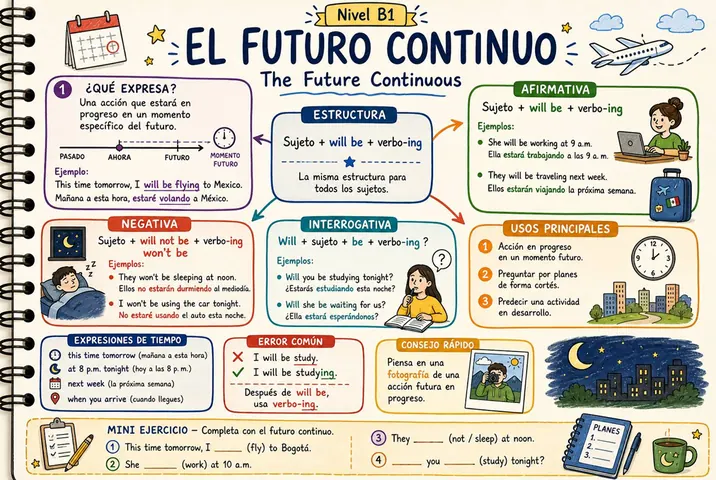 Nivel B1
EL FUTURO CONTINUO
The Future Continuous
1 ¿QUÉ EXPRESA?
Una acción que estará en
progreso en un momento
específico del futuro.
PASADO AHORA FUTURO MOMENTO
FUTURO
Ejemplo:
This time tomorrow, I will be flying to Mexico.
Mañana a esta hora, estaré volando a México.
ESTRUCTURA
Sujeto + will be + verbo-ing
La misma estructura para
todos los sujetos.
AFIRMATIVA
Sujeto + will be + verbo-ing
Ejemplos:
• She will be working at 9 a.m.
Ella estará trabajando a las 9 a.m.
• They will be traveling next week.
Ellos estarán viajando la próxima semana.
NEGATIVA
Sujeto + will not be + verbo-ing
won't be
Ejemplos:
• They won't be sleeping at noon.
Ellos no estarán durmiendo al mediodía.
• I won't be using the car tonight.
No estaré usando el auto esta noche.
z z z
INTERROGATIVA
Will + sujeto + be + verbo-ing ?
Ejemplos:
• Will you be studying tonight?
¿Estarás estudiando esta noche?
• Will she be waiting for us?
¿Ella estará esperándonos?
?
USOS PRINCIPALES
1 Acción en progreso
en un momento futuro.
2 Preguntar por planes
de forma cortés.
3 Predecir una actividad
en desarrollo.
12
3
6
9
EXPRESIONES DE TIEMPO
this time tomorrow (mañana a esta hora)
at 8 p.m. tonight (hoy a las 8 p. m.)
next week (la próxima semana)
when you arrive (cuando llegues)
ERROR COMÚN
I will be study.
I will be studying.
Después de will be,
usa verbo-ing.
CONSEJO RÁPIDO
Piensa en una
fotografía de una
acción futura en
progreso.
MINI EJERCICIO – Completa con el futuro continuo.
1 This time tomorrow, I ______ (fly) to Bogotá.
2 She ______ (work) at 10 a.m.
3 They ______ (not / sleep) at noon.
4 ______ you ______ (study) tonight?
PLANES
1.
2.
3.